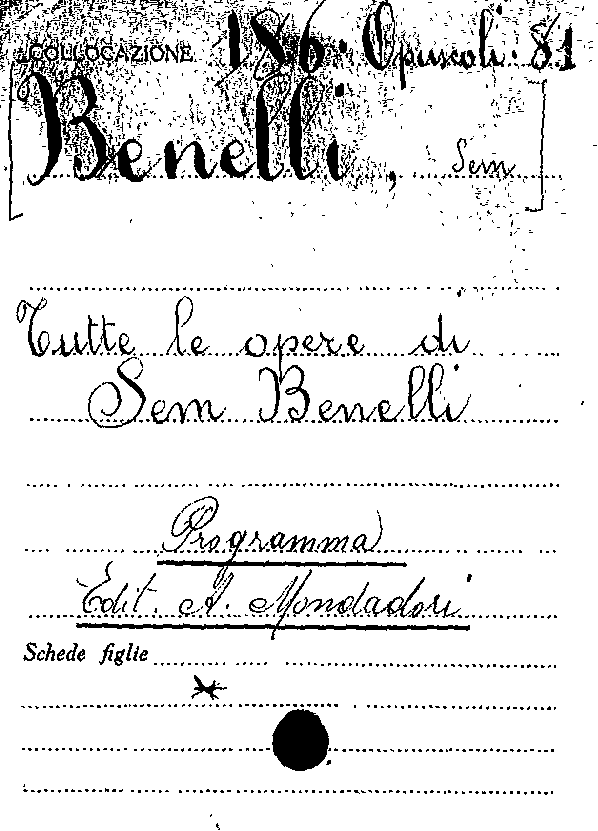 COLLOCAZIONE 186. Opuscoli. 81
[Benelli, Sem]
Tutte le opere di
Sem Benelli
Programma
Edit. A. Mondadori
Schede figlie